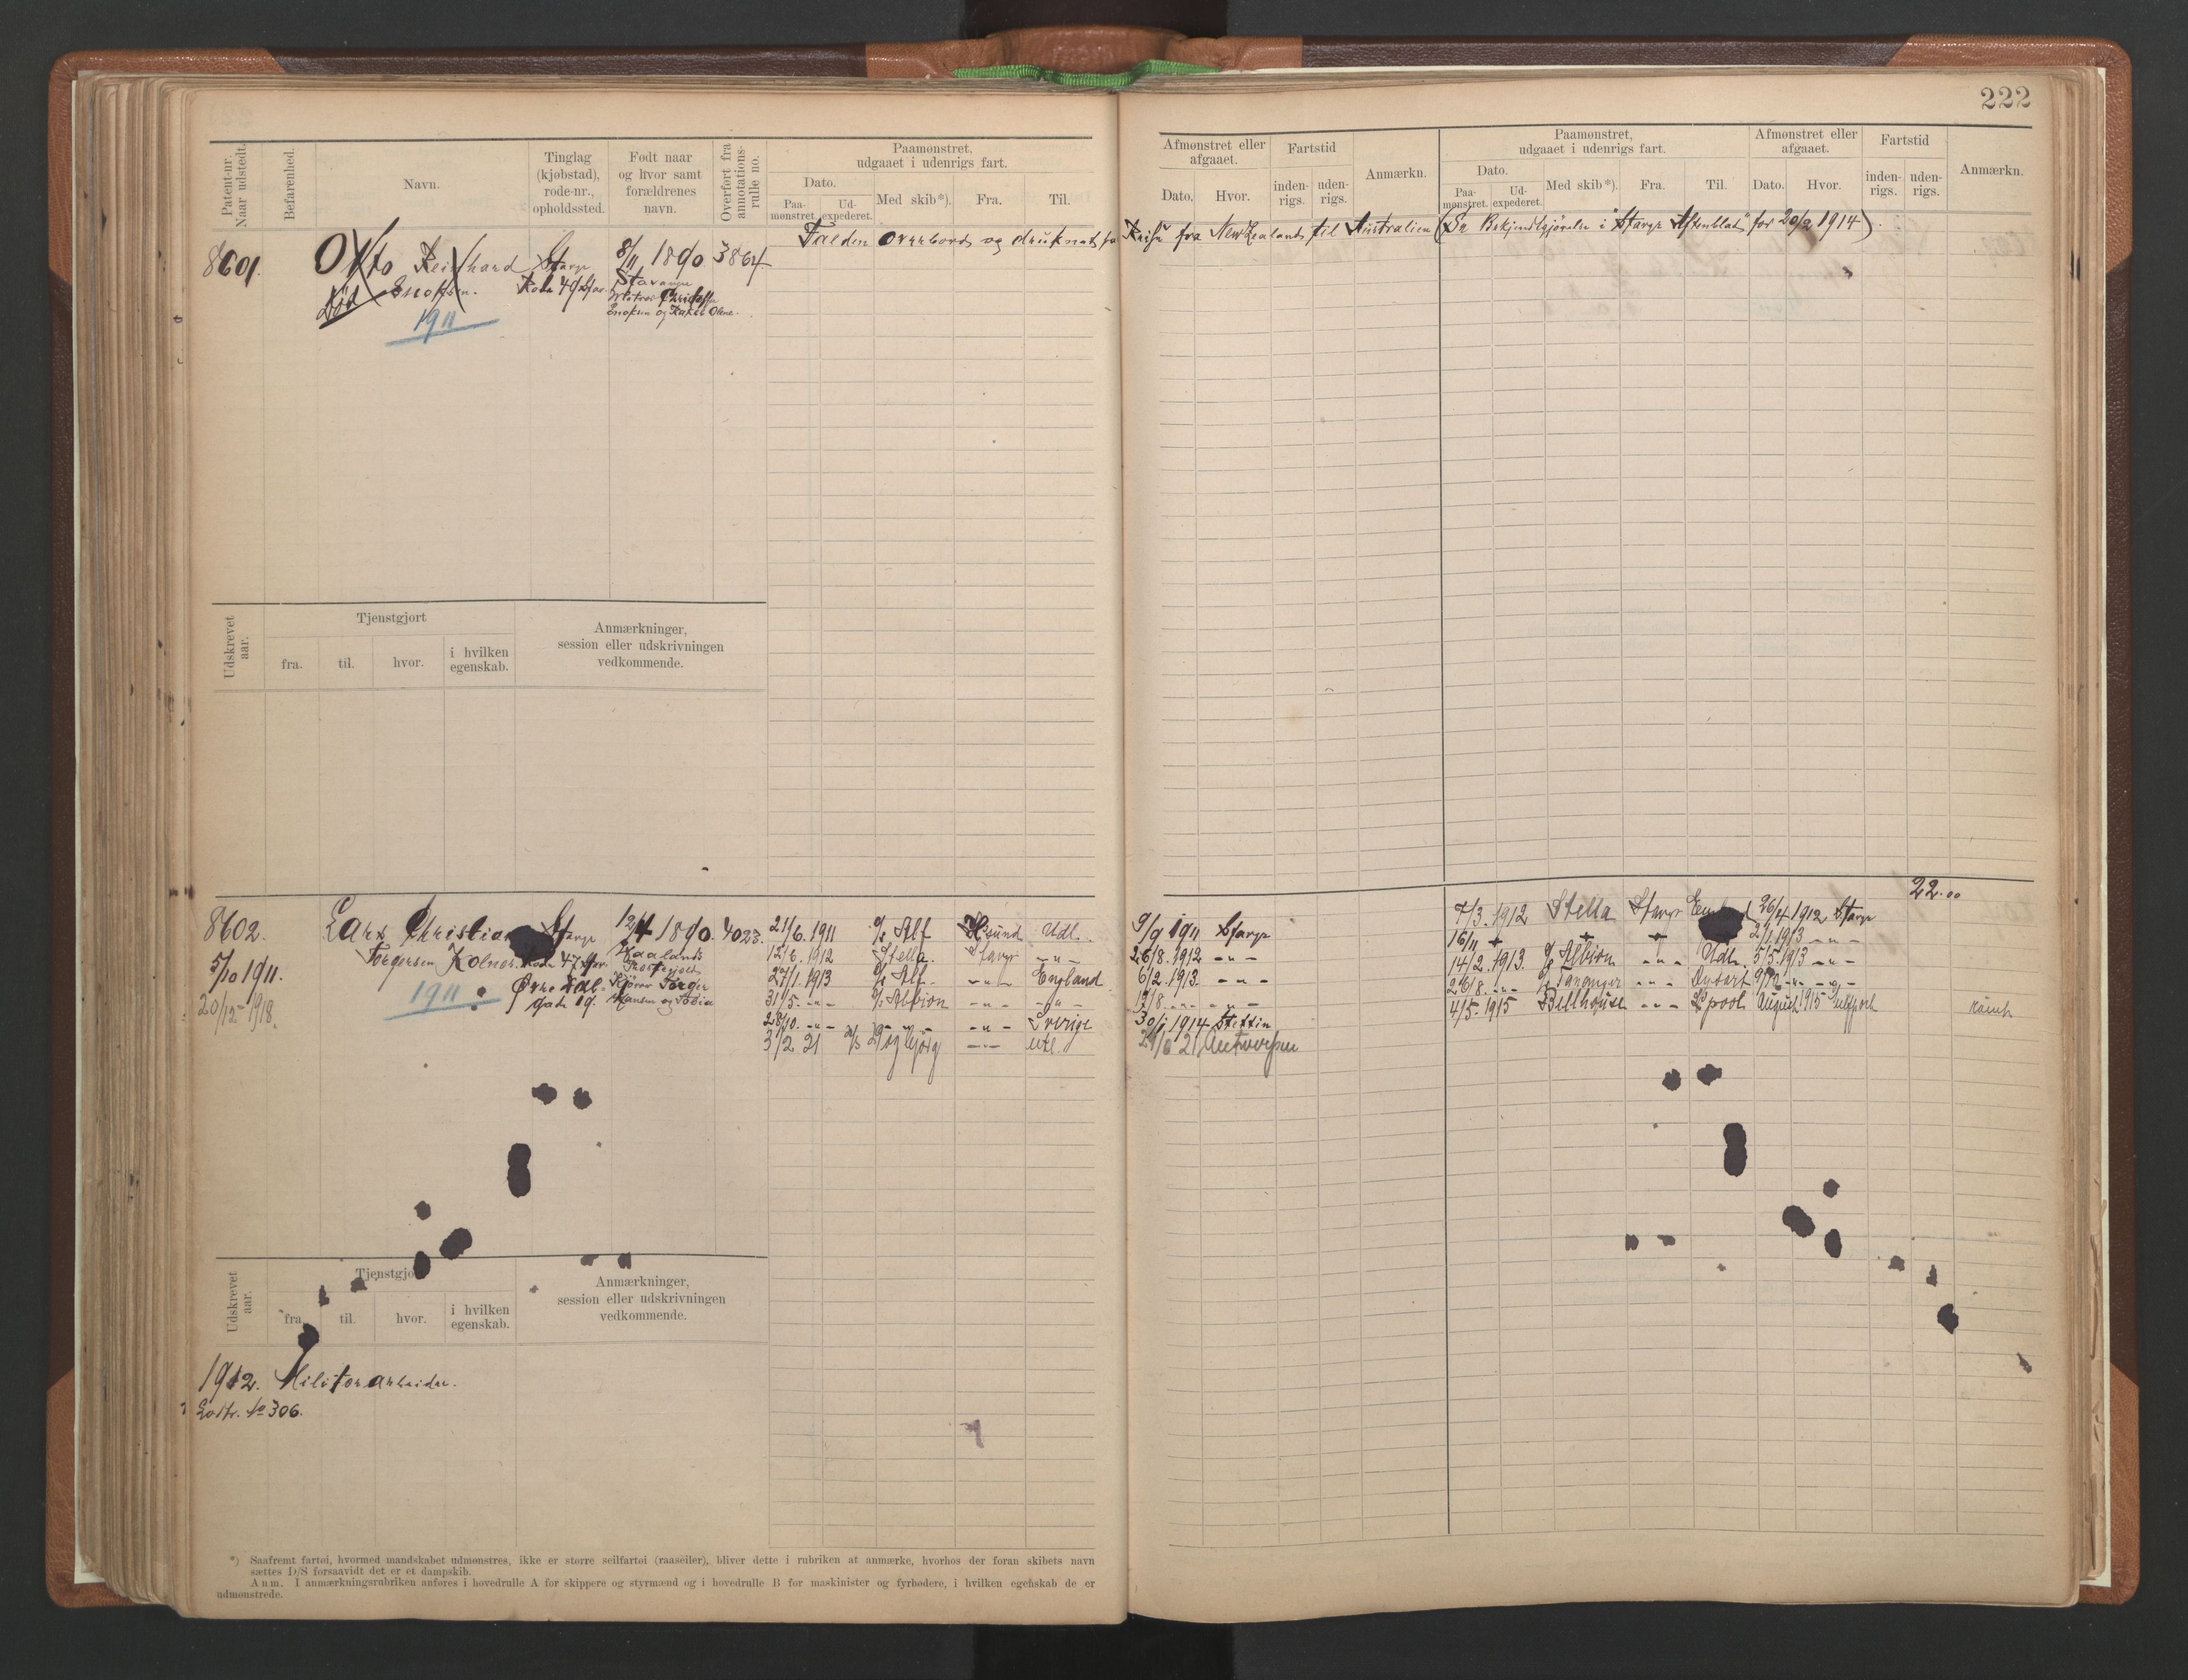 222
Patent-nr. Naar udstedt.
Befarenhed.
Navn.
Tinglag (kjøbstad), rode-nr., opholdssted.
Født naar og hvor samt forældrenes navn.
Overført fra annotations-rulle no.
Paamønstret, udgaaet i udenrigs fart.
Dato.
Paa-mønstret.
Ud-expederet.
Med skib*).
Fra.
Til.
Afmønstret eller afgaaet.
Dato.
Hvor.
Fartstid
inden-rigs.
uden-rigs.
Anmærkn.
Paamønstret, udgaaet i udenrigs fart.
Dato.
Paa-mønstret.
Ud-expederet.
Med skib*).
Fra.
Til.
Afmønstret eller afgaaet.
Dato.
Hvor.
Fartstid
inden-rigs.
uden-rigs.
Anmærkn.
Falden overbord og druknet paa Reise fra New Zealand til Australien (Se Bekjendtgjørelse i "Stavgr Aftenblad" for 20/2 1914).
8601.
Otto Reinhard
Enoksen.
Død
1911
Stavgr
Rode 49
8/11 1890
Stavanger
Enoksen og Oline.
3864
Udskrevet aar.
Tjenstgjort
fra.
til.
hvor.
i hvilken egenskab.
Anmærkninger, session eller udskrivningen vedkommende.
8602.
5/10 1911.
20/12-1918.
Lars Christian
Torgersen Kolnes.
1911
Stavgr
Rode 47
gate 19.
12/4 1890.
Haaland
Torger
Hansen og
4023.
21/6. 1911 Alf Udl.
12/6. 1912 Stella. Stavgr -"-
27/1. 1913 Alf. -"- England
31/5. -"- Albion -"- -"-
28/10. -"- -"- -"- Sverige
3/2 21 Dagbjørg -"- Utl.
9/9 1911 Stavgr
26/8. 1912 -"-
6/2. 1913. -"-
-"- -"-
30/1 1914 Stettin
21 Antwerpen
22.00
7/3. 1912 Stella Stavgr 26/4 1912 Stavgr
16/11 2/1 1913 -"-
14/2. 1913. Albion -"- Udl. 5/5. 1913 -"-
26/8. -"- Tananger -"- Dysart -"- -"-
4/5-1915 Bellhouse -"- L'pool August 1915
Udskrevet aar.
Tjenstgjort
fra
til.
hvor.
i hvilken egenskab.
Anmærkninger, session eller udskrivningen vedkommende.
1912. Militærarbeider.
Lodtr. № 306.
*) Saafremt fartøi, hvormed mandskabet udmønstres, ikke er større seilfartøi (raaseiler), bliver dette i rubriken at anmærke, hvorhos der foran skibets navn
sættes D/S forsaavidt det er et dampskib.
Anm. I anmærkningsrubriken anføres i hovedrulle A for skippere og styrmænd og i hovedrulle B for maskinister og fyrbødere, i hvilken egenskab de er
udmønstrede.